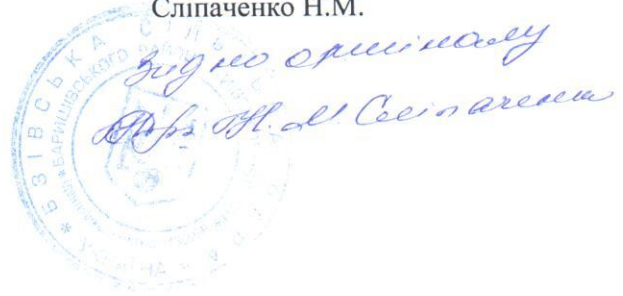 Сліпаченко Н.М.
Згідно оригіналу
Н. М. Сліпаченко
БЗІВСЬКА СІЛЬСЬКА
БАРИШІВСЬКОГО РАЙОНУ
УКРАЇНА